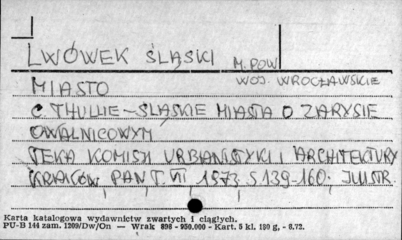 LWÓWEK ŚLĄSKI M. POW.
WOJ. WROCŁAWSKIE
MIASTO
C. THULLIE – ŚLĄSKIE MIASTA O ZARYSIE
OWALNICOWYM
TEKA KOMISJI URBANISTYKI I ARCHITEKTURY
KRAKÓW PAN T. VII 1973 S 139-160. ILUSTR.
Karta katalogowa wydawnictw zwartych i ciągłych.
PU-B 144 zam. 1209/Dw/On — Wrak 898 - 950.000 - Kart. 5 kl. 190 g, - 8.72.